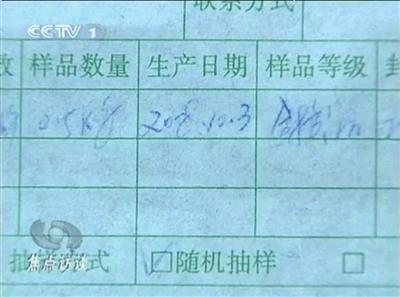 CCTV 1
联系方式
数 样品数量 生产日期 样品等级 封
0.5kg 2008.10.3 合格品
焦点访谈
抽样方式 □随机抽样 □